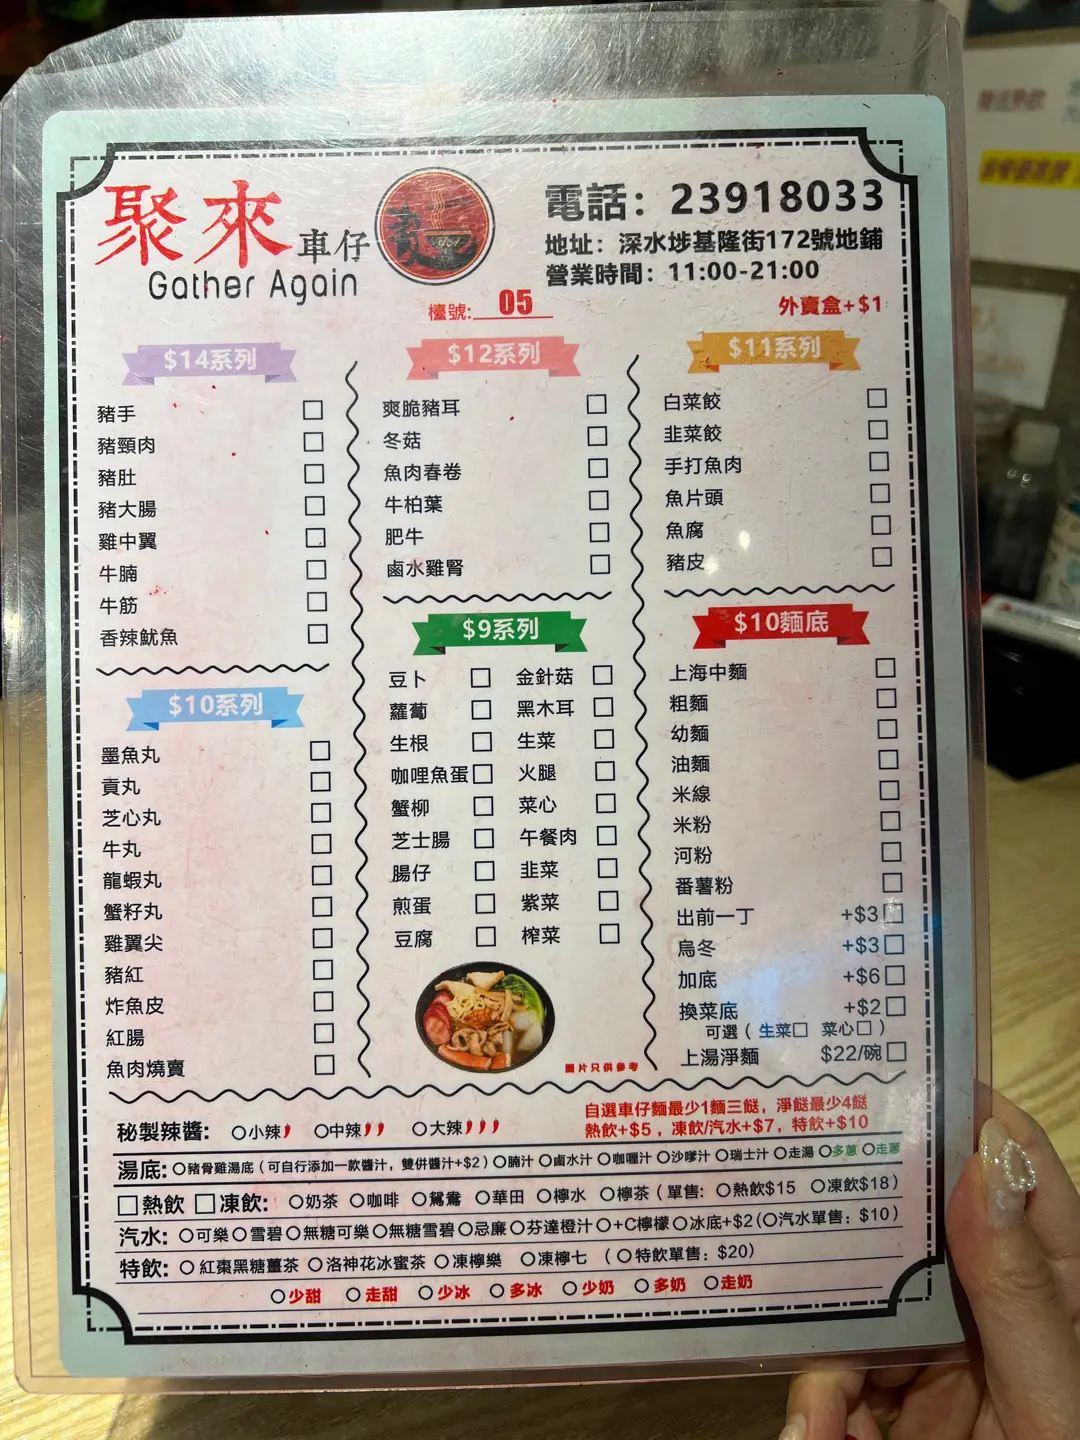 聚來車仔
Gather Again
電話：23918033
地址：深水埗基隆街172號地鋪
營業時間：11:00-21:00
檯號:05
外賣盒+$1
$14系列
豬手
豬頸肉
豬肚
豬大腸
雞中翼
牛腩
牛筋
香辣魷魚
$10系列
墨魚丸
貢丸
芝心丸
牛丸
龍蝦丸
蟹籽丸
雞翼尖
豬紅
炸魚皮
紅腸
魚肉燒賣
$12系列
爽脆豬耳
冬菇
魚肉春卷
牛柏葉
肥牛
鹵水雞腎
$9系列
豆卜 金針菇
蘿蔔 黑木耳
生根 生菜
咖哩魚蛋 火腿
蟹柳 菜心
芝士腸 午餐肉
腸仔 韭菜
煎蛋 紫菜
豆腐 榨菜
圖片只供參考
$11系列
白菜餃
韭菜餃
手打魚肉
魚片頭
魚腐
豬皮
$10麵底
上海中麵
粗麵
幼麵
油麵
米線
米粉
河粉
番薯粉
出前一丁 +$3
烏冬 +$3
加底 +$6
換菜底 +$2
可選（生菜 菜心）
上湯淨麵 $22/碗
秘製辣醬: 小辣 中辣 大辣
自選車仔麵最少1麵三餸，淨餸最少4餸
熱飲+$5，凍飲/汽水+$7，特飲+$10
湯底: 豬骨雞湯底（可自行添加一款醬汁，雙併醬汁+$2）腩汁 鹵水汁 咖喱汁 沙嗲汁 瑞士汁 走湯 多蔥 走蔥
熱飲 凍飲: 奶茶 咖啡 鴛鴦 華田 檸水 檸茶（單售: 熱飲$15 凍飲$18）
汽水: 可樂 雪碧 無糖可樂 無糖雪碧 忌廉 芬達橙汁 +C檸檬 冰底+$2（汽水單售：$10）
特飲: 紅棗黑糖薑茶 洛神花冰蜜茶 凍檸樂 凍檸七 （特飲單售：$20）
少甜 走甜 少冰 多冰 少奶 多奶 走奶